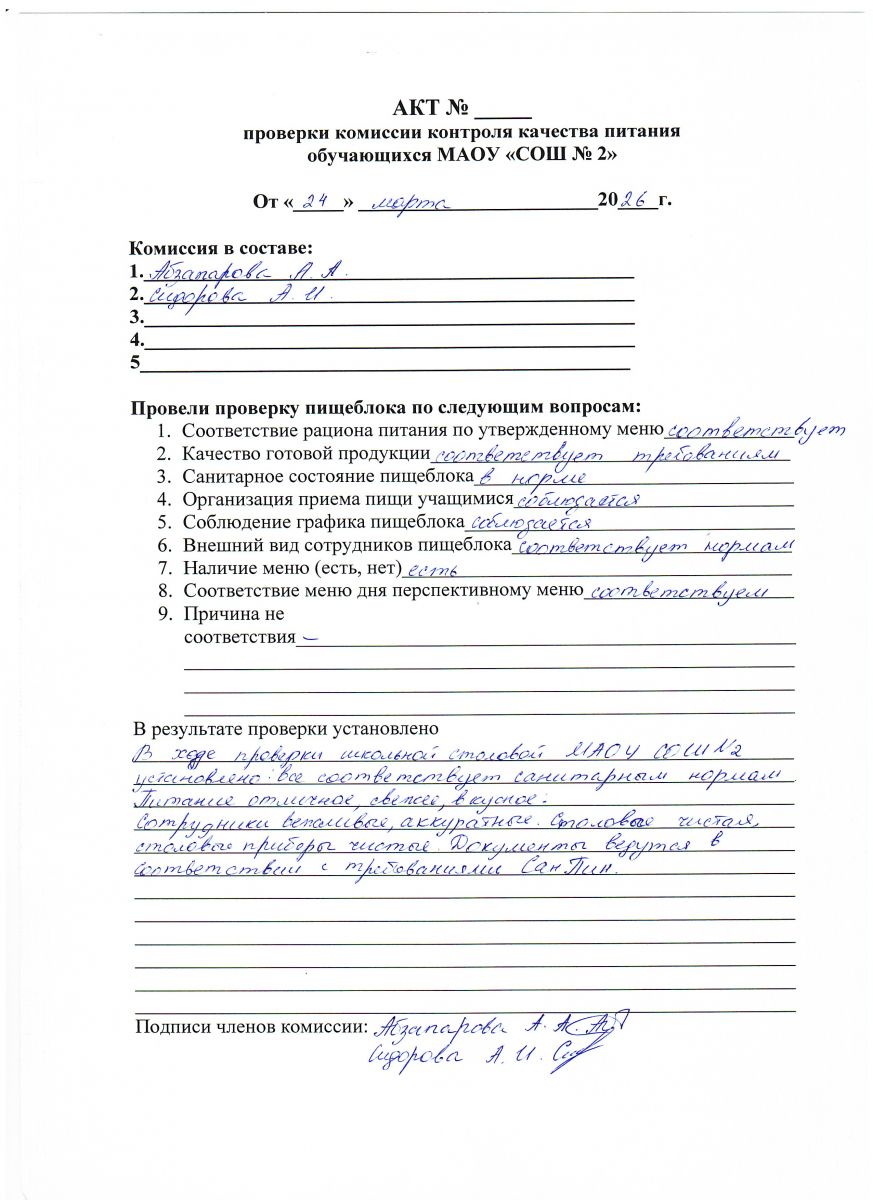 АКТ № _____
проверки комиссии контроля качества питания
обучающихся МАОУ «СОШ № 2»
От « 24 » марта 2026 г.
Комиссия в составе:
1. Абзапарова А. А.
2. Сидорова А. И.
3.
4.
5
Провели проверку пищеблока по следующим вопросам:
1. Соответствие рациона питания по утвержденному меню соответствует
2. Качество готовой продукции соответствует требованиям
3. Санитарное состояние пищеблока в норме
4. Организация приема пищи учащимися соблюдается
5. Соблюдение графика пищеблока соблюдается
6. Внешний вид сотрудников пищеблока соответствует нормам
7. Наличие меню (есть, нет) есть
8. Соответствие меню дня перспективному меню соответствуем
9. Причина не
соответствия –
В результате проверки установлено
В ходе проверки школьной столовой МАОУ СОШ №2
установлено: все соответствует санитарным нормам
Питание отличное, свежее, вкусное.
Сотрудники вежливые, аккуратные. Столовые чистая,
столовые приборы чистые. Документы ведутся в
соответствии с требованиями СанПин.
Подписи членов комиссии: Абзапарова А. А.
Сидорова А. И.